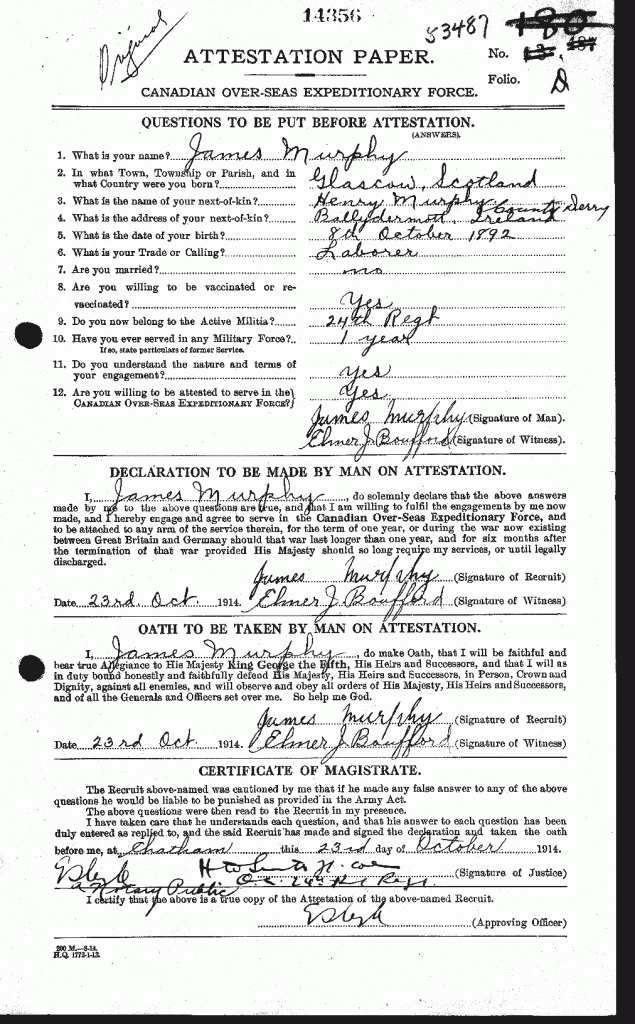 14356
Original
53487
ATTESTATION PAPER.
No.
Folio.
CANADIAN OVER-SEAS EXPEDITIONARY FORCE.
QUESTIONS TO BE PUT BEFORE ATTESTATION.
(ANSWERS).
1. What is your name? James Murphy
2. In what Town, Township or Parish, and in
what Country were you born? Glascow, Scotland
3. What is the name of your next-of-kin? Henry Murphy
4. What is the address of your next-of-kin? Ballydermott, County Derry Ireland
5. What is the date of your birth? 8th October 1892
6. What is your Trade or Calling? Laborer
7. Are you married? no
8. Are you willing to be vaccinated or re-
vaccinated? Yes
9. Do you now belong to the Active Militia? 24th Regt
10. Have you ever served in any Military Force? 1 year
If so, state particulars of former Service.
11. Do you understand the nature and terms of
your engagement? Yes
12. Are you willing to be attested to serve in the
CANADIAN OVER-SEAS EXPEDITIONARY FORCE? Yes
James Murphy (Signature of Man).
Elmer J. Boufford (Signature of Witness).
DECLARATION TO BE MADE BY MAN ON ATTESTATION.
I, James Murphy, do solemnly declare that the above answers
made by me to the above questions are true, and that I am willing to fulfil the engagements by me now
made, and I hereby engage and agree to serve in the Canadian Over-Seas Expeditionary Force, and
to be attached to any arm of the service therein, for the term of one year, or during the war now existing
between Great Britain and Germany should that war last longer than one year, and for six months after
the termination of that war provided His Majesty should so long require my services, or until legally
discharged.
James Murphy (Signature of Recruit)
Date 23rd Oct 1914. Elmer J. Boufford (Signature of Witness)
OATH TO BE TAKEN BY MAN ON ATTESTATION.
I, James Murphy, do make Oath, that I will be faithful and
bear true Allegiance to His Majesty King George the Fifth, His Heirs and Successors, and that I will as
in duty bound honestly and faithfully defend His Majesty, His Heirs and Successors, in Person, Crown and
Dignity, against all enemies, and will observe and obey all orders of His Majesty, His Heirs and Successors,
and of all the Generals and Officers set over me. So help me God.
James Murphy (Signature of Recruit)
Date 23rd Oct 1914. Elmer J. Boufford (Signature of Witness)
CERTIFICATE OF MAGISTRATE.
The Recruit above-named was cautioned by me that if he made any false answer to any of the above
questions he would be liable to be punished as provided in the Army Act.
The above questions were then read to the Recruit in my presence.
I have taken care that he understands each question, and that his answer to each question has been
duly entered as replied to, and the said Recruit has made and signed the declaration and taken the oath
before me, at Chatham this 23rd day of October 1914.
(Signature of Justice)
a Notary Public O.C. 24th Regt.
I certify that the above is a true copy of the Attestation of the above-named Recruit.
(Approving Officer)
200 M.—8-14.
H.Q. 1772-1-13.